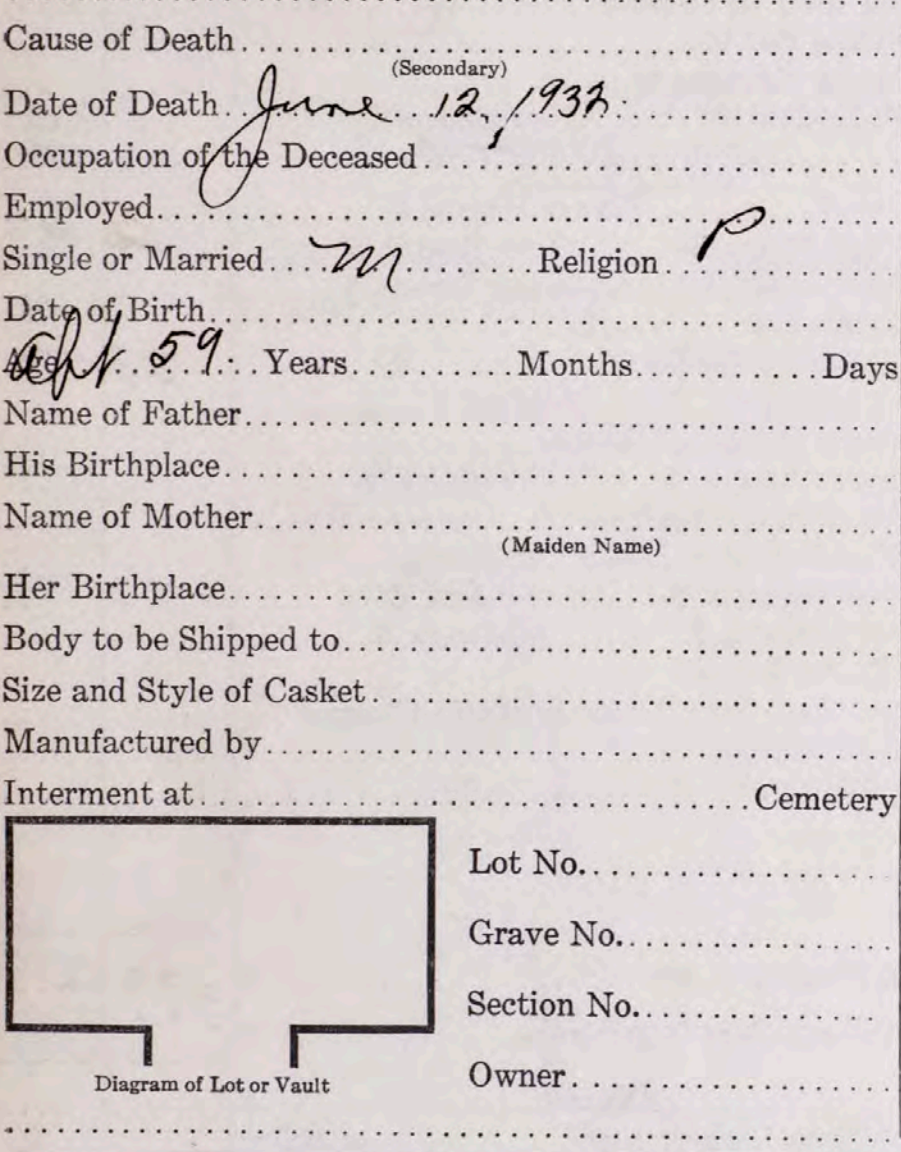 Cause of Death
(Secondary)
Date of Death June 12, 1932
Occupation of the Deceased
Employed
Single or Married M Religion P
Date of Birth
Age Abt 59 Years Months Days
Name of Father
His Birthplace
Name of Mother
(Maiden Name)
Her Birthplace
Body to be Shipped to
Size and Style of Casket
Manufactured by
Interment at Cemetery
Lot No.
Grave No.
Section No.
Owner
Diagram of Lot or Vault